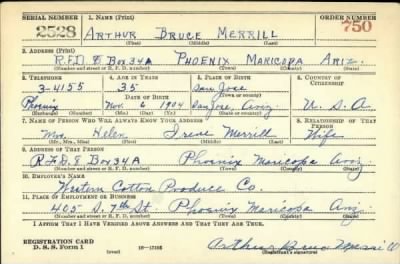 SERIAL NUMBER 1. NAME (Print) ORDER NUMBER
2528 ARTHUR BRUCE MERRILL 750
(First) (Middle) (Last)
2. ADDRESS (Print)
R.F.D. 8 BOX 34A PHOENIX MARICOPA ARIZ.
(Number and street or R. F. D. number) (Town) (County) (State)
3. TELEPHONE 4. AGE IN YEARS 5. PLACE OF BIRTH 6. COUNTRY OF CITIZENSHIP
3-4155 35 San Jose
DATE OF BIRTH (Town or county)
Phoenix Nov. 6 1904 San Jose, Ariz. U. S. A
(Exchange) (Number) (Mo.) (Day) (Yr.) (State or country)
7. NAME OF PERSON WHO WILL ALWAYS KNOW YOUR ADDRESS 8. RELATIONSHIP OF THAT PERSON
Mrs. Helen Irene Merrill Wife
(Mr., Mrs., Miss) (First) (Middle) (Last)
9. ADDRESS OF THAT PERSON
R.F.D. 8 Box 34A Phoenix Maricopa Ariz.
(Number and street or R. F. D. number) (Town) (County) (State)
10. EMPLOYER'S NAME
Western Cotton Produce Co.
11. PLACE OF EMPLOYMENT OR BUSINESS
405 S. 7th St. Phoenix Maricopa Ariz.
(Number and street or R. F. D. number) (Town) (County) (State)
I AFFIRM THAT I HAVE VERIFIED ABOVE ANSWERS AND THAT THEY ARE TRUE.
REGISTRATION CARD
D. S. S. Form 1 16—17105 Arthur Bruce Merrill
(Registrant's signature)